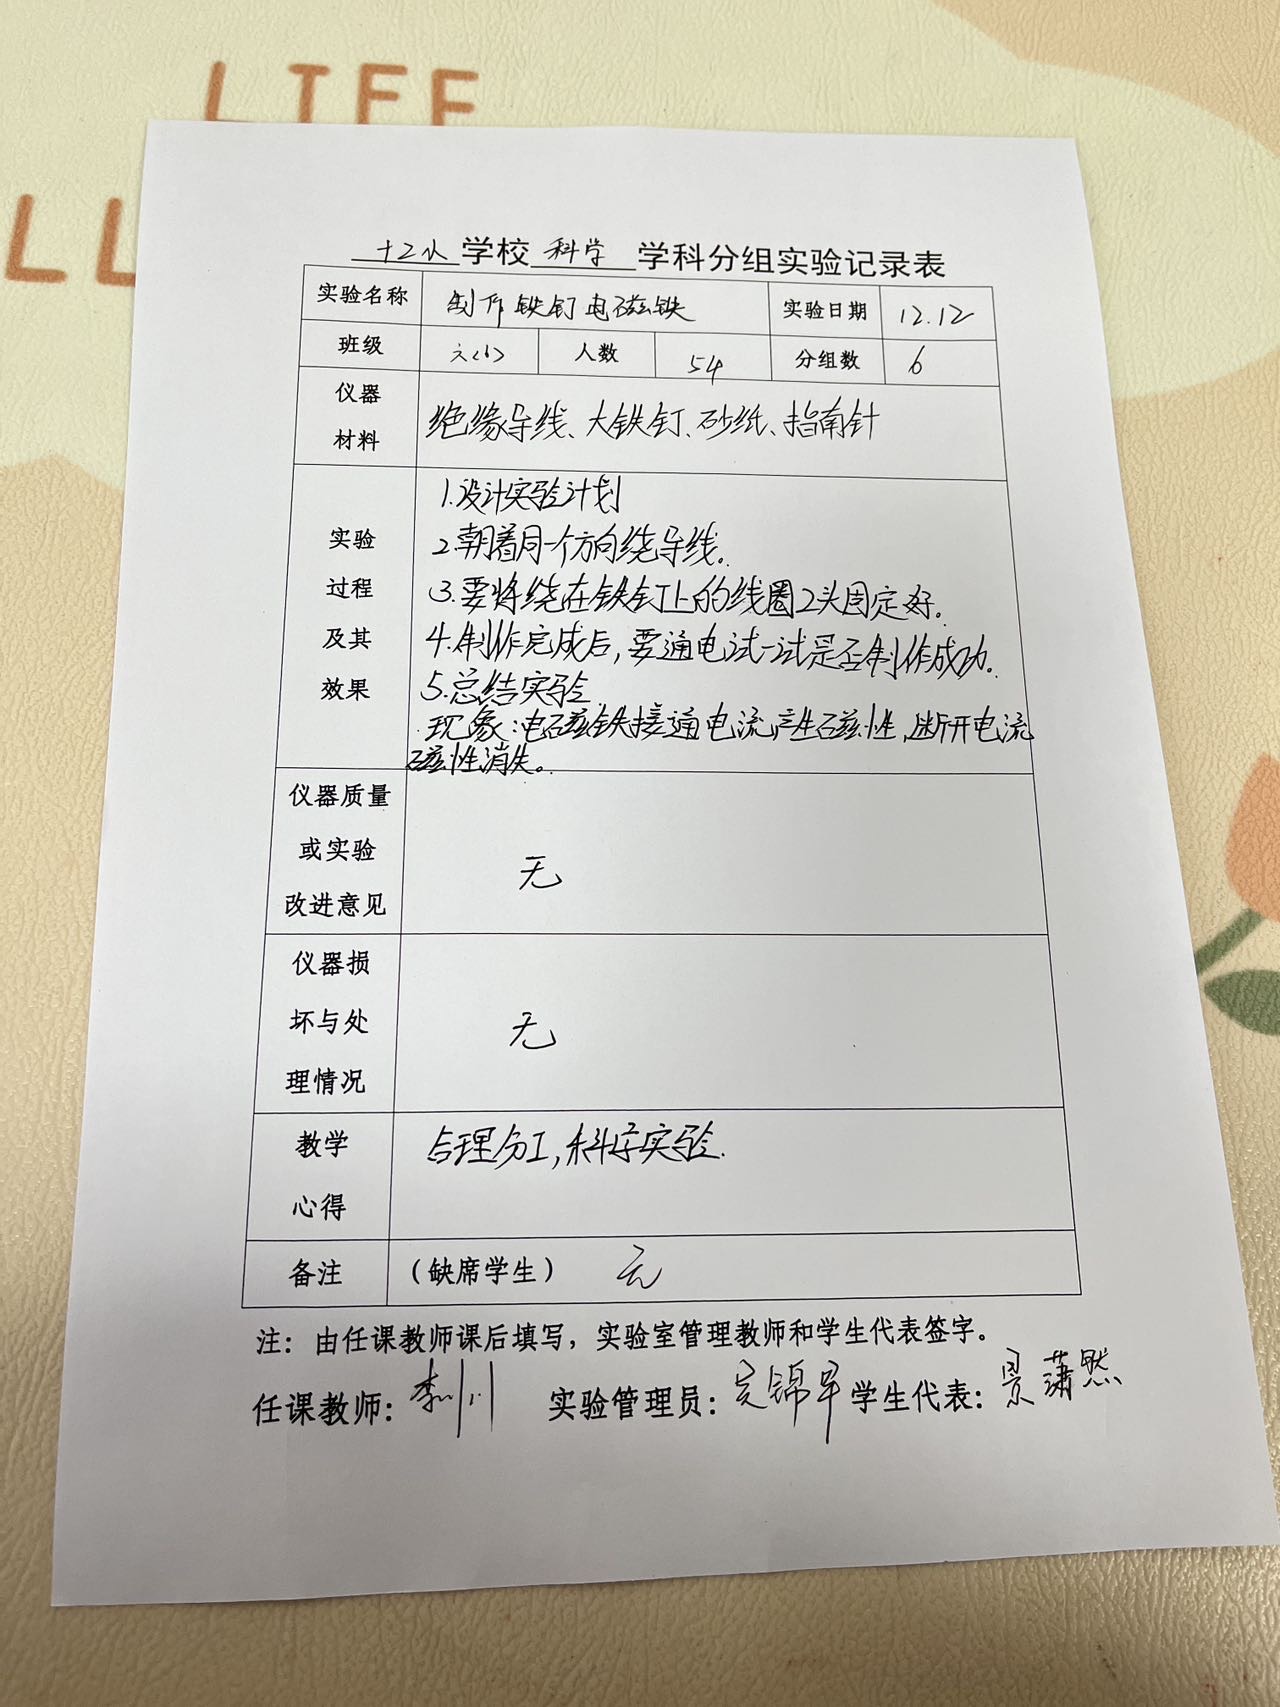 LIFE
LL
十二小学校 科学 学科分组实验记录表
实验名称 制作铁钉电磁铁 实验日期 12.12
班级 六(1) 人数 54 分组数 6
仪器
材料
绝缘导线、大铁钉、砂纸、指南针
实验
过程
及其
效果
1.设计实验计划
2.朝着同一个方向绕导线。
3.要将绕在铁钉上的线圈2头固定好。
4.制作完成后,要通电试一试是否制作成功。
5.总结实验
现象:电磁铁接通电流产生磁性,断开电流
磁性消失。
仪器质量
或实验
改进意见
无
仪器损
坏与处
理情况
无
教学
心得
合理分工,科学实验.
备注 (缺席学生) 无
注：由任课教师课后填写，实验室管理教师和学生代表签字。
任课教师：李川 实验管理员：锦 学生代表：景潇然